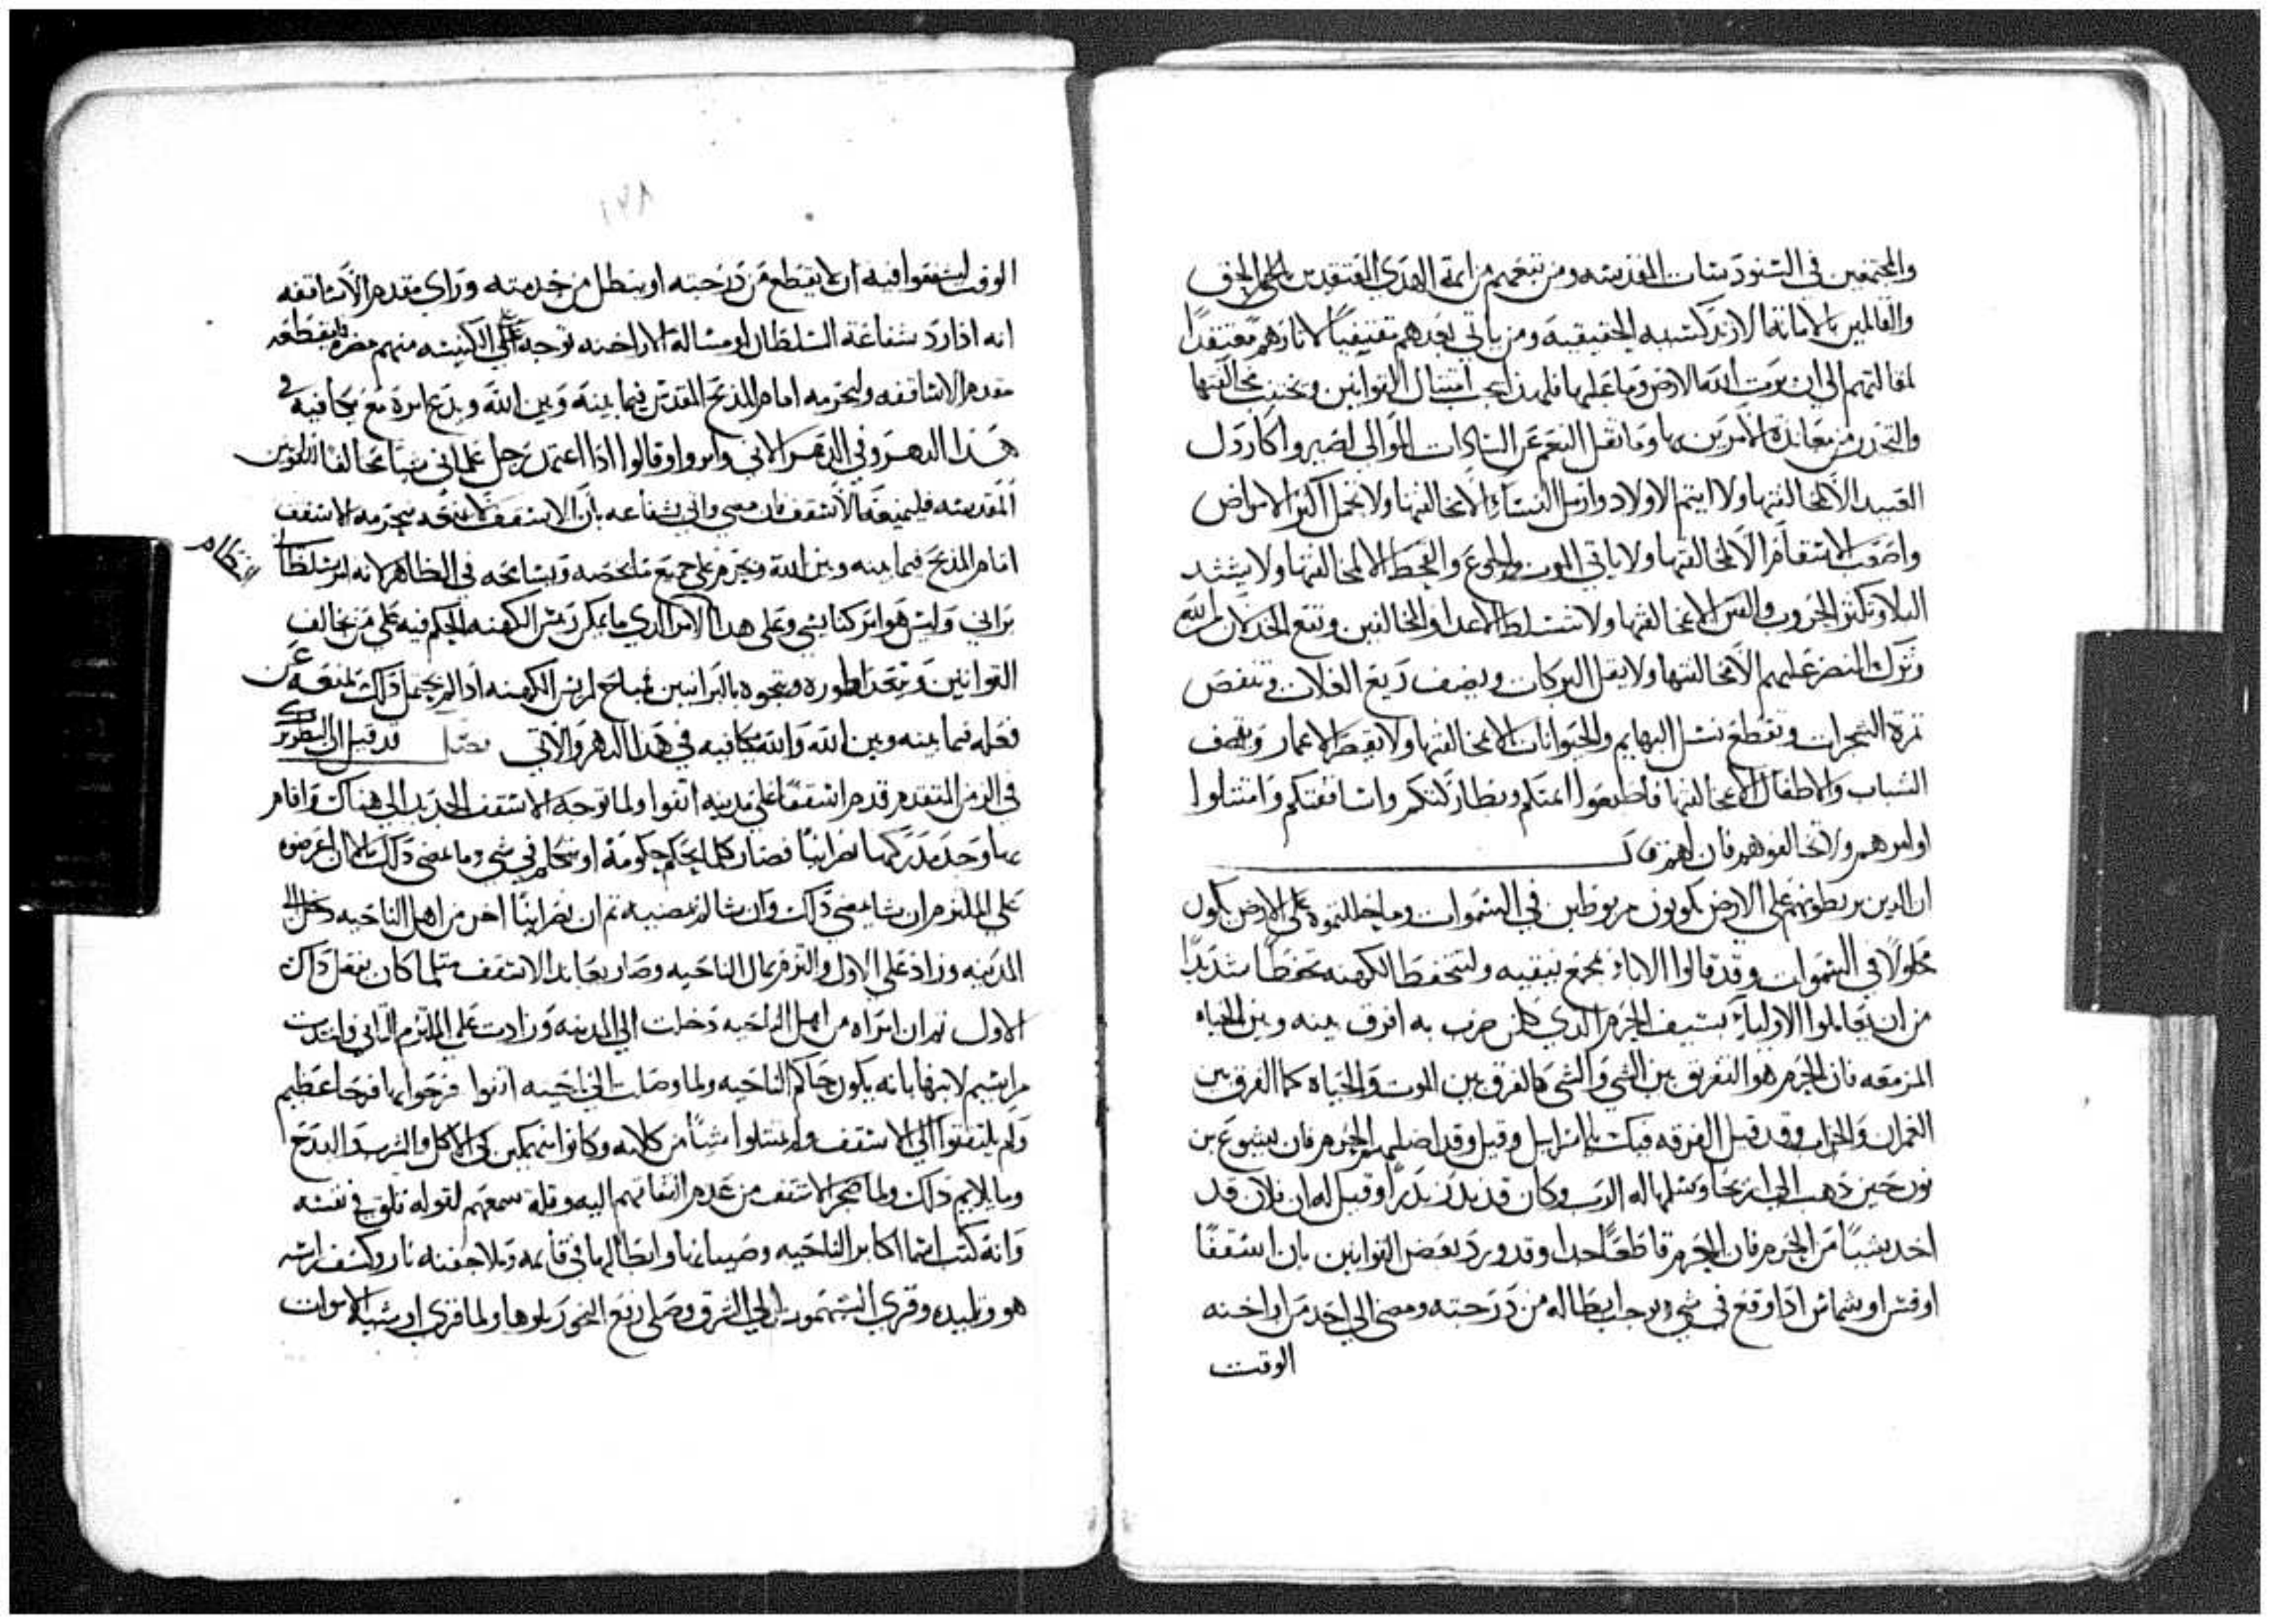 والمجتمعين في السنودسات المقدسه ومن تبعهم من ايمة الهدي المعتقدين بالحق
والقايلين بالامانة الارتدكسيه الحقيقية ومن ياتي بعدهم مقتفيا لاثارهم معتقدا
لمقالتهم الي ان يرت الله الارض وما عليها فلهذا يجب امتثال القوانين وتجنب مخالفتها
والتحذر من معاندة الامرين بها وما نقل النعم عن السادات الموالي لصير واكار دول
العبيد الا لمخالفتها ولا ايتم الاولاد وارمل النساء الا لمخالفتها ولا تحمل اكثر الامراض
واصعب الاسقام الا لمخالفتها ولا ياتي الموت والجوع والقحط الا لمخالفتها ولا يشتد
البلا وتكثر الحروب والفتن الا لمخالفتها ولا تتسلط الاعدا والمخالفين وتقع الخدلان من الله
وترك النصر عليهم الا لمخالفتها ولا يقل البركات ويضعف ريع الغلات وتنقص
ثمرة الشجرات وتقطع نسل البهايم والحيوانات الا لمخالفتها ولا يقصر الاعمار وتقصف
الشباب والاطفال الا لمخالفتها فاطيعوا ايمتكم وبطاركتكم واساقفتكم وامتثلوا
اوامرهم ولا تخالفوهم فان لهم قال
ان الدين يربطونهم علي الارض يكونون مربوطين في السموات وما حللتموه علي الارض يكون
محلولا في السموات وقد قالوا الاباء بمجمع نيقيه وليتحفظ الكهنه تحفظا شديدا
من ان يقابلوا الاولياء بسيف الحرم الذي كلمن ضرب به افرق بينه وبين الحياه
المزمعه فان الحرم هو التفريق بين الشي والشي كالفرق بين الموت والحياه كما الفرق بين
العمران والخراب وقد قيل الفرقه فيك يا اسراييل وقيل وقد اضلهم الحرم فان يشوع بن
نون حين ذهب الي اريحا وسلمها له الرب وكان قد ندر ندرا وقيل له ان فلان قد
اخد شيئا من الحرم فان الحرم قاطعا جدا وقد ورد بعض القوانين بان اسقفا
او قس او شماس اذا وقع في شي يوجب ابطاله من درجته ومضي الي احد من اراخنه
الوقت
١٧٨
الوقت ليشفعوا فيه ان لا يقطع من درجته او يبطل من خدمته وراي مقدم الاساقفه
انه اذا رد شفاعة السلطان او مسالة الاراخنه توجه علي الكنيسه منهم مضره فليقطعه
مقدم الاساقفه وليحرمه امام المذبح المقدس فيما بينه وبين الله ويدع امره مع يجافيه في
هذا الدهر وفي الدهر الاتي وامروا وقالوا اذا اعتمد رجل علماني شيا مخالفا للقوانين
المقدسه فليمنعه الاسقف فان مضي واتي بشفاعه بان الاسقف لا يمنعه فيحرمه الاسقف
امام المذبح فيما بينه وبين الله ويحرم علي جميع ما يخصه ويسامحه في الظاهر لانه امر سلطان
انتظام
براني وليس هو امر كنايسي وعلي هدا الامر الدي ما يمكن ريس الكهنه الحكم فيه علي من خالف
القوانين وتعدا طوره ويتجوه بالبرانيين فمباح لريس الكهنه اذا لم يحتمل ذلك لمنعه عن
فعله فيما بينه وبين الله والله يكافيه في هدا الدهر والاتي فصل قد قيل ان البطريرك
في الزمن المتقدم قدم اسقفا علي مدينة اتفوا ولما توجه الاسقف الجديد الي هناك واقام
بها وجد مدركها نصرانيا فصار كلما يحكم حكومة او يتكلم في شي وما يمضي ذلك الا ان اعرضوه
علي الملتزم ان شا يمضي ذلك وان شا لم يمضيه تم ان نصرانيا اخر من اهل الناحيه دخل الي
المدينه وزاد علي الاول والتزم بمال الناحيه وصار يعاند الاسقف متلما كان يفعل ذاك
الاول تم ان امراه من اهل الناحيه دخلت الي المدينه وزادت علي الملتزم التاني واتت
مراسيم لابنها بانه يكون حاكم الناحيه ولما وصلت الي ناحية اتفوا فرحوا بها فرحا عظيم
ولم يلتفتوا الي الاسقف ولم يمتثلوا شيا من كلامه وكانوا منهمكين في الاكل والشرب والبدخ
وما يلايم ذلك ولما ضجر الاسقف من عدم التفاتهم اليه وقلة سمعهم لقوله قلق في نفسه
وانه كتب اسما اكابر الناحيه وصبيانها وابطالها في قايمه وملا جفنه نار وكشف راسه
هو وتلميده وقري السهمودات الي الشرق وصلي ربع النحي ربلوها ولما قري او سبا الاموات